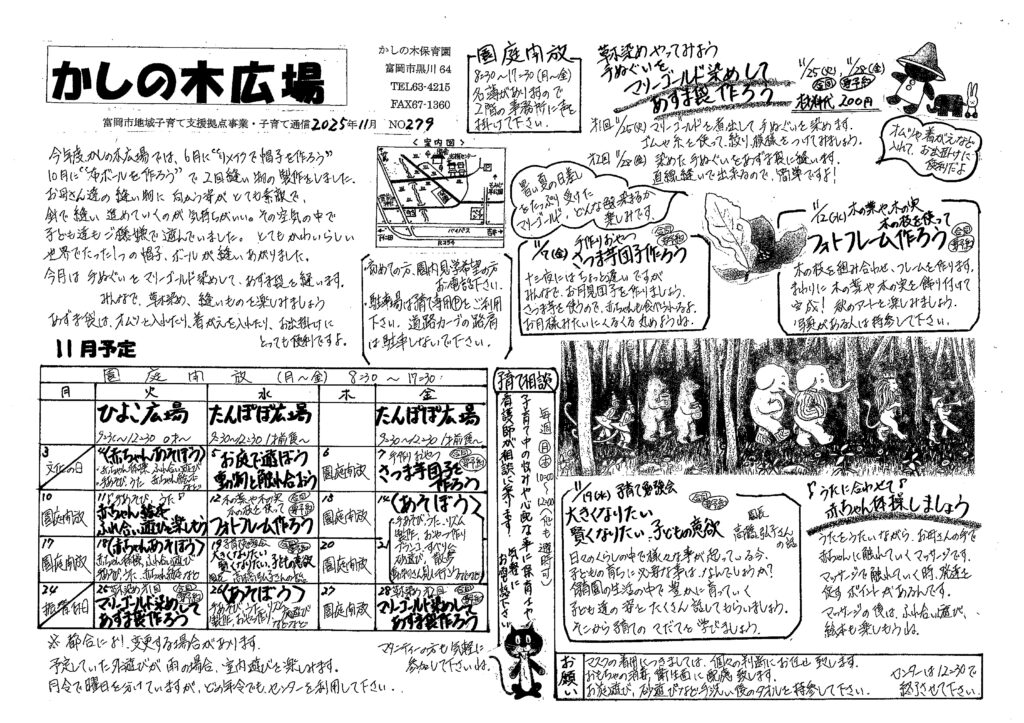 かしの木広場
かしの木保育園
富岡市黒川64
TEL63-4215
FAX67-1360
富岡市地域子育て支援拠点事業・子育て通信 2025年11月 NO279
今年度かしの木広場では、6月に"リメイクで帽子を作ろう"
10月に"布ボールを作ろう"で2回縫い物の製作をしました。
お母さん達の縫い物に向かう姿がとても素敵で、
針で縫い進めていくのが気持ちがいい。その空気の中で
子ども達もご機嫌で遊んでいました。とてもかわいらしい
世界でたった1つの帽子、ボールが縫いあがりました。
今月は手ぬぐいをマリーゴールド染めして、あずま袋を縫います。
みんなで、草木染め、縫いものを楽しみましょう
あずま袋は、オムツを入れたり、着がえを入れたり、お出掛けに
とっても便利ですよ。
園庭開放
8:30~17:30(月~金)
名簿がありますので
2階の事務所に声を
掛けて下さい。
<案内図>
バイパス
R254
初めての方、園内見学希望の方
お電話下さい。
駐車場は子育て専用Pをご利用
下さい。道路カーブの路肩
は駐車しないで下さい。
草木染めやってみよう
手ぬぐいを
マリーゴールド染めして
あずま袋作ろう
11/25(火) 11/28(金)
材料代、200円
1回 11/25(火) マリーゴールドを煮出して手ぬぐいを染めます。
ゴムや糸を使って、絞り模様をつけてみましょう。
2回 11/28(金) 染めた手ぬぐいをあずま袋に縫います。
直線縫いで出来るので、簡単ですよ!
オムツや着がえなど
入れて、お出掛けに
便利だよ
暑い夏の日差し
をたっぷり受けた
マリーゴールド。どんな色に染まるか
楽しみです。
11/7(金) 手作りおやつ
さつま芋団子作ろう
十三夜にはちょっと遅いですが
みんなで、お月見団子を作りましょう。
さつま芋を使うので、赤ちゃんも食べられるよ。
お月様みたいにくるくる丸めようね。
11/12(水) 木の葉や木の実
木の枝を使って
フォトフレーム作ろう
木の枝を組み合わせ、フレームを作ります。
まわりに木の葉や木の実を飾り付けて
完成! 秋のアートを楽しみましょう。
写真がある人は持参して下さい。
11月予定
園庭開放 (月~金) 8:30~17:30
月 火 水 木 金
ひよこ広場 たんぽぽ広場 たんぽぽ広場
9:30~12:30 0才~ 9:30~12:30 1才前後~ 9:30~12:30 1才前後~
3 文化の日
4 (赤ちゃんあそぼう)
赤ちゃん体操、ふれ合い遊び
5 お庭で遊ぼう
実の物と触れ合おう
6 園庭開放
7 手作りおやつ
さつま芋団子を
作ろう
10 園庭開放
11 手あそび、うた
赤ちゃん体操
ふれ合い遊びを楽しもう
12 木の葉や木の実
木の枝を使って
フォトフレーム作ろう
13 園庭開放
14 (あそぼう)
手あそび、うた、リズム
製作、おやつ作り
ブランコ、すべり台
17 園庭開放
18 (赤ちゃんあそぼう)
赤ちゃん体操、ふれ合い遊び
19 子育て勉強会
大きくなりたい
賢くなりたい、子どもの意欲
20 園庭開放
21
24 振替休日
25
マリーゴールド染めして
あずま袋作ろう
26 (あそぼう)
27 園庭開放
28
マリーゴールド染めして
あずま袋作ろう
※都合により、変更する場合があります。
予定していた外遊びが雨の場合、室内遊びを楽しみます。
月令で曜日を分けていますが、どの年令でも、センターを利用して下さい・・
マタニティーの方も気軽に
参加して下さいね
子育て相談
毎週月・木 10:00~12:00(他も随時可)
子育て中の悩みや心配な事に保育士や
看護師が相談に乗ります。気軽に
お声掛け下さい
11/19(水) 子育て勉強会
大きくなりたい
賢くなりたい、子どもの意欲
園長
高橋弘子さん
の話
日々のくらしの中で様々な事が起きている今、
子どもの育ちに必要な事は、なんでしょうか?
保育園の生活の中で豊かに育っていく
子ども達の姿をたくさん話してもらいましょう。
そこから子育てのてだてを学びましょう。
♪うたに合わせて♪
赤ちゃん体操しましょう
うたをうたいながら、お母さんの手で
赤ちゃんに触れていくマッサージです。
マッサージで触れていく時、発達を
促すポイントがあるんです。
マッサージの後は、ふれ合い遊び、
絵本も楽しもうね。
お願い
マスクの着用につきましては、個々の判断にお任せ致します。
おもちゃの消毒、衛生面に配慮致します。
お庭遊び、砂遊びなど手洗い後のタオルを持参して下さい。
センターは12:30で
終了させて下さい。